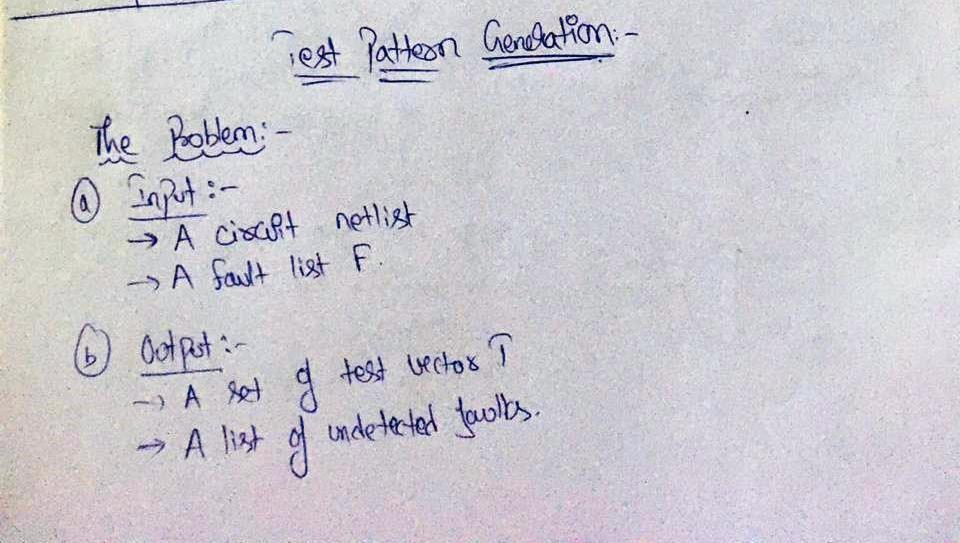 Test Pattern Generation:-
The Problem:-
(a) Input :-
→ A circuit netlist
→ A fault list F.
(b) Output :-
→ A set of test vector T
→ A list of undetected faults.